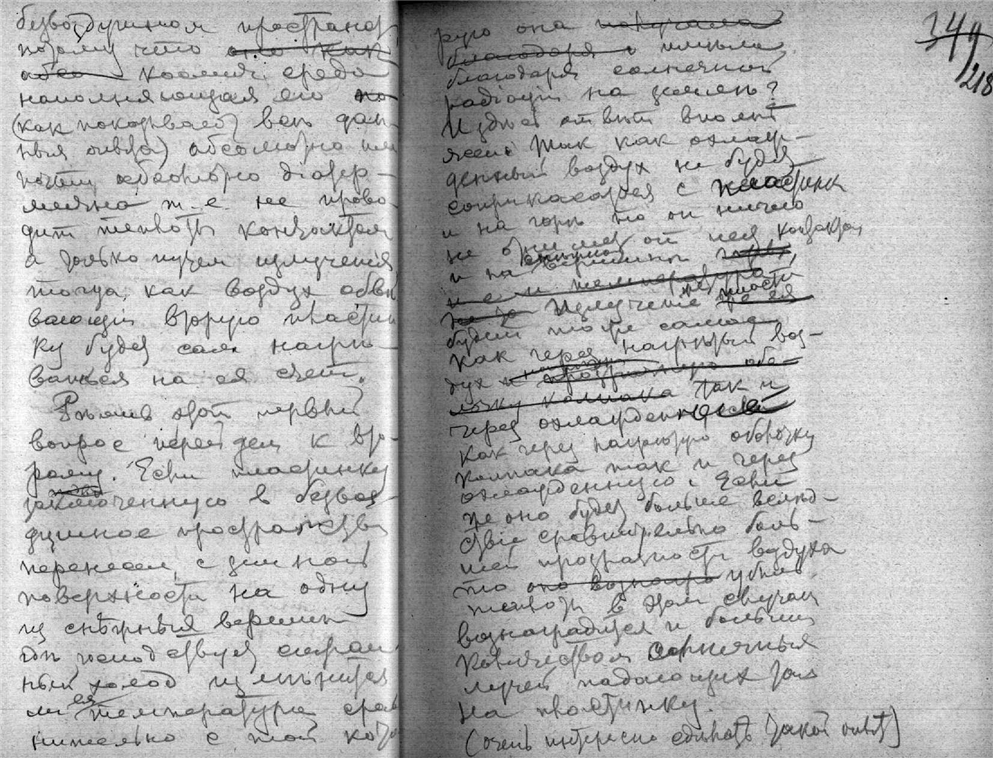 безвоздушном пространст
потому что ~~оно как~~
~~абсо~~ космич. среда
наполняющая его ~~по~~
(как показывает весь дан
ный опыт) абсолютно или
почти абсолютно діатер-
мична т. е. не прово
дит теплоты
а только путем излучения
тогда, как воздух обве
вающій вторую пластин
ку будет сам нагре-
ваться на ея счет.
Решив этот первый
вопрос перейдем к вто-
рому. Если пластинку
заключенную в безвоз-
душное пространство
перенесем с земной
поверхности на одну
из снѣжных вершин
где господствует страш
ный холод изменится
ли ея температура срав
нительно с той кото
рую она ~~получала~~
~~благодаря~~ и имѣла
благодаря солнечной
радіаціи на землѣ?
И здѣсь отвѣт вполнѣ
ясен. Так как охлаж-
денный воздух не будет
соприкасаться с
и на горѣ то он ничего
не отнимет от нея
и на вершинѣ
~~и ея температура,~~
Излучение
будет то же самое
как через нагрѣтый воз-
дух
~~колпака~~ так и
через охлажденный
как через нагрѣтую оболочку
колпака так и через
охлажденную. Если
же оно будет больше вслѣд-
ствіе сравнительно боль-
шей прозрачности воздуха
то ~~оно вознагра~~ убыль
теплоты в этом случаѣ
вознаградится и большим
количеством солнечных
лучей падающих там
на пластинку.
(очень интересно сдѣлать такой опыт)
~~344~~
218